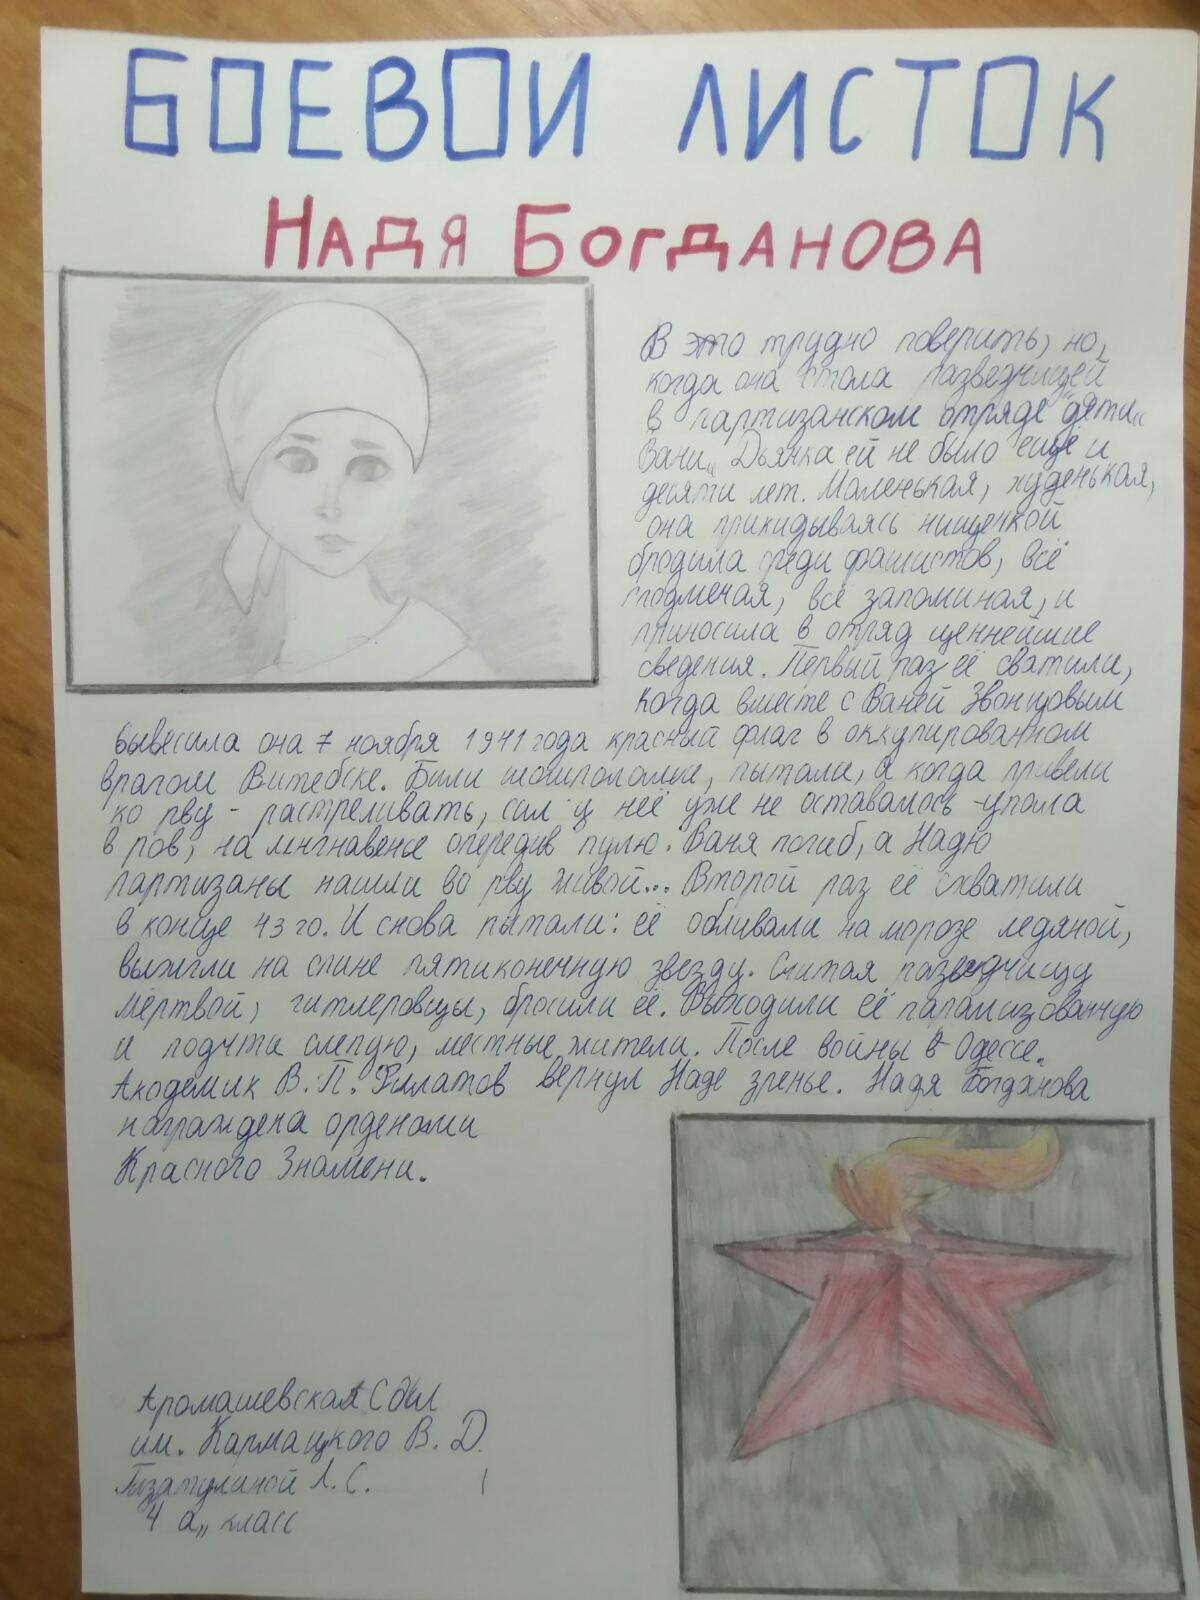 БОЕВОИ ЛИСТОК
НАДЯ БОГДАНОВА
В это трудно поверить, но,
когда она стала разведчицей
в партизанском отряде "дети„
Вани„ Дьячка ей не было ещё и
десяти лет. Маленькая, худенькая,
она прикидываясь нищенкой
бродила среди фашистов, всё
подмечая, всё запоминая, и
приносила в отряд ценнейшие
сведения. Первый раз её сватили,
когда вместе с Ваней Звонцовым
вывесила она 7 ноября 1941 года красный флаг в оккупированном
врагом Витебске. Били шомполами, пытали, а когда привели
ко рву - растреливать, сил у неё уже не оставалось - упала
в ров, на мгновенье опередив пулю. Ваня погиб, а Надю
партизаны нашли во рву живой... Второй раз её схватили
в конце 43 го. И снова пытали: её обливали на морозе ледяной,
выжгли на спине пятиконечную звезду. Считая разведчицу
мёртвой, гитлеровцы, бросили её. Выходили её парализованную
и подчти слепую, местные жители. После войны в Одессе.
Академик В. П. Филатов вернул Наде зренье. Надя Богданова
награждена орденами
Красного Знамени.
Аромашевская СОШ
им. Кармацкого В. Д.
Гизатулиной Л. С.
4 а„ класс